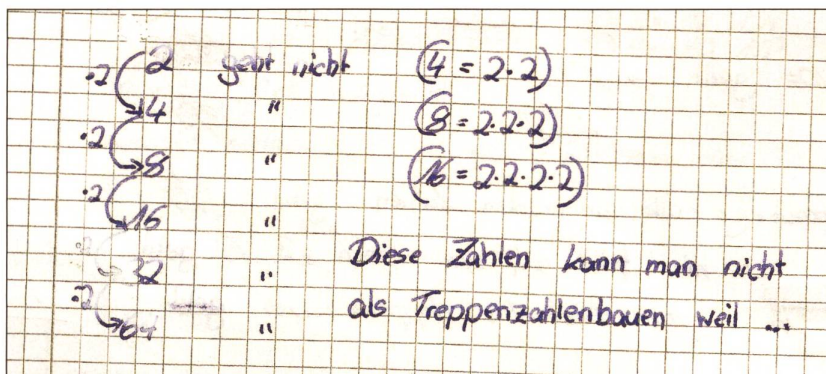 2 geht nicht (4 = 2·2)
·2
4 " (8 = 2·2·2)
·2
8 " (16 = 2·2·2·2)
·2
16 "
32 " Diese Zahlen kann man nicht
·2
64 " als Treppenzahlenbauen weil ...